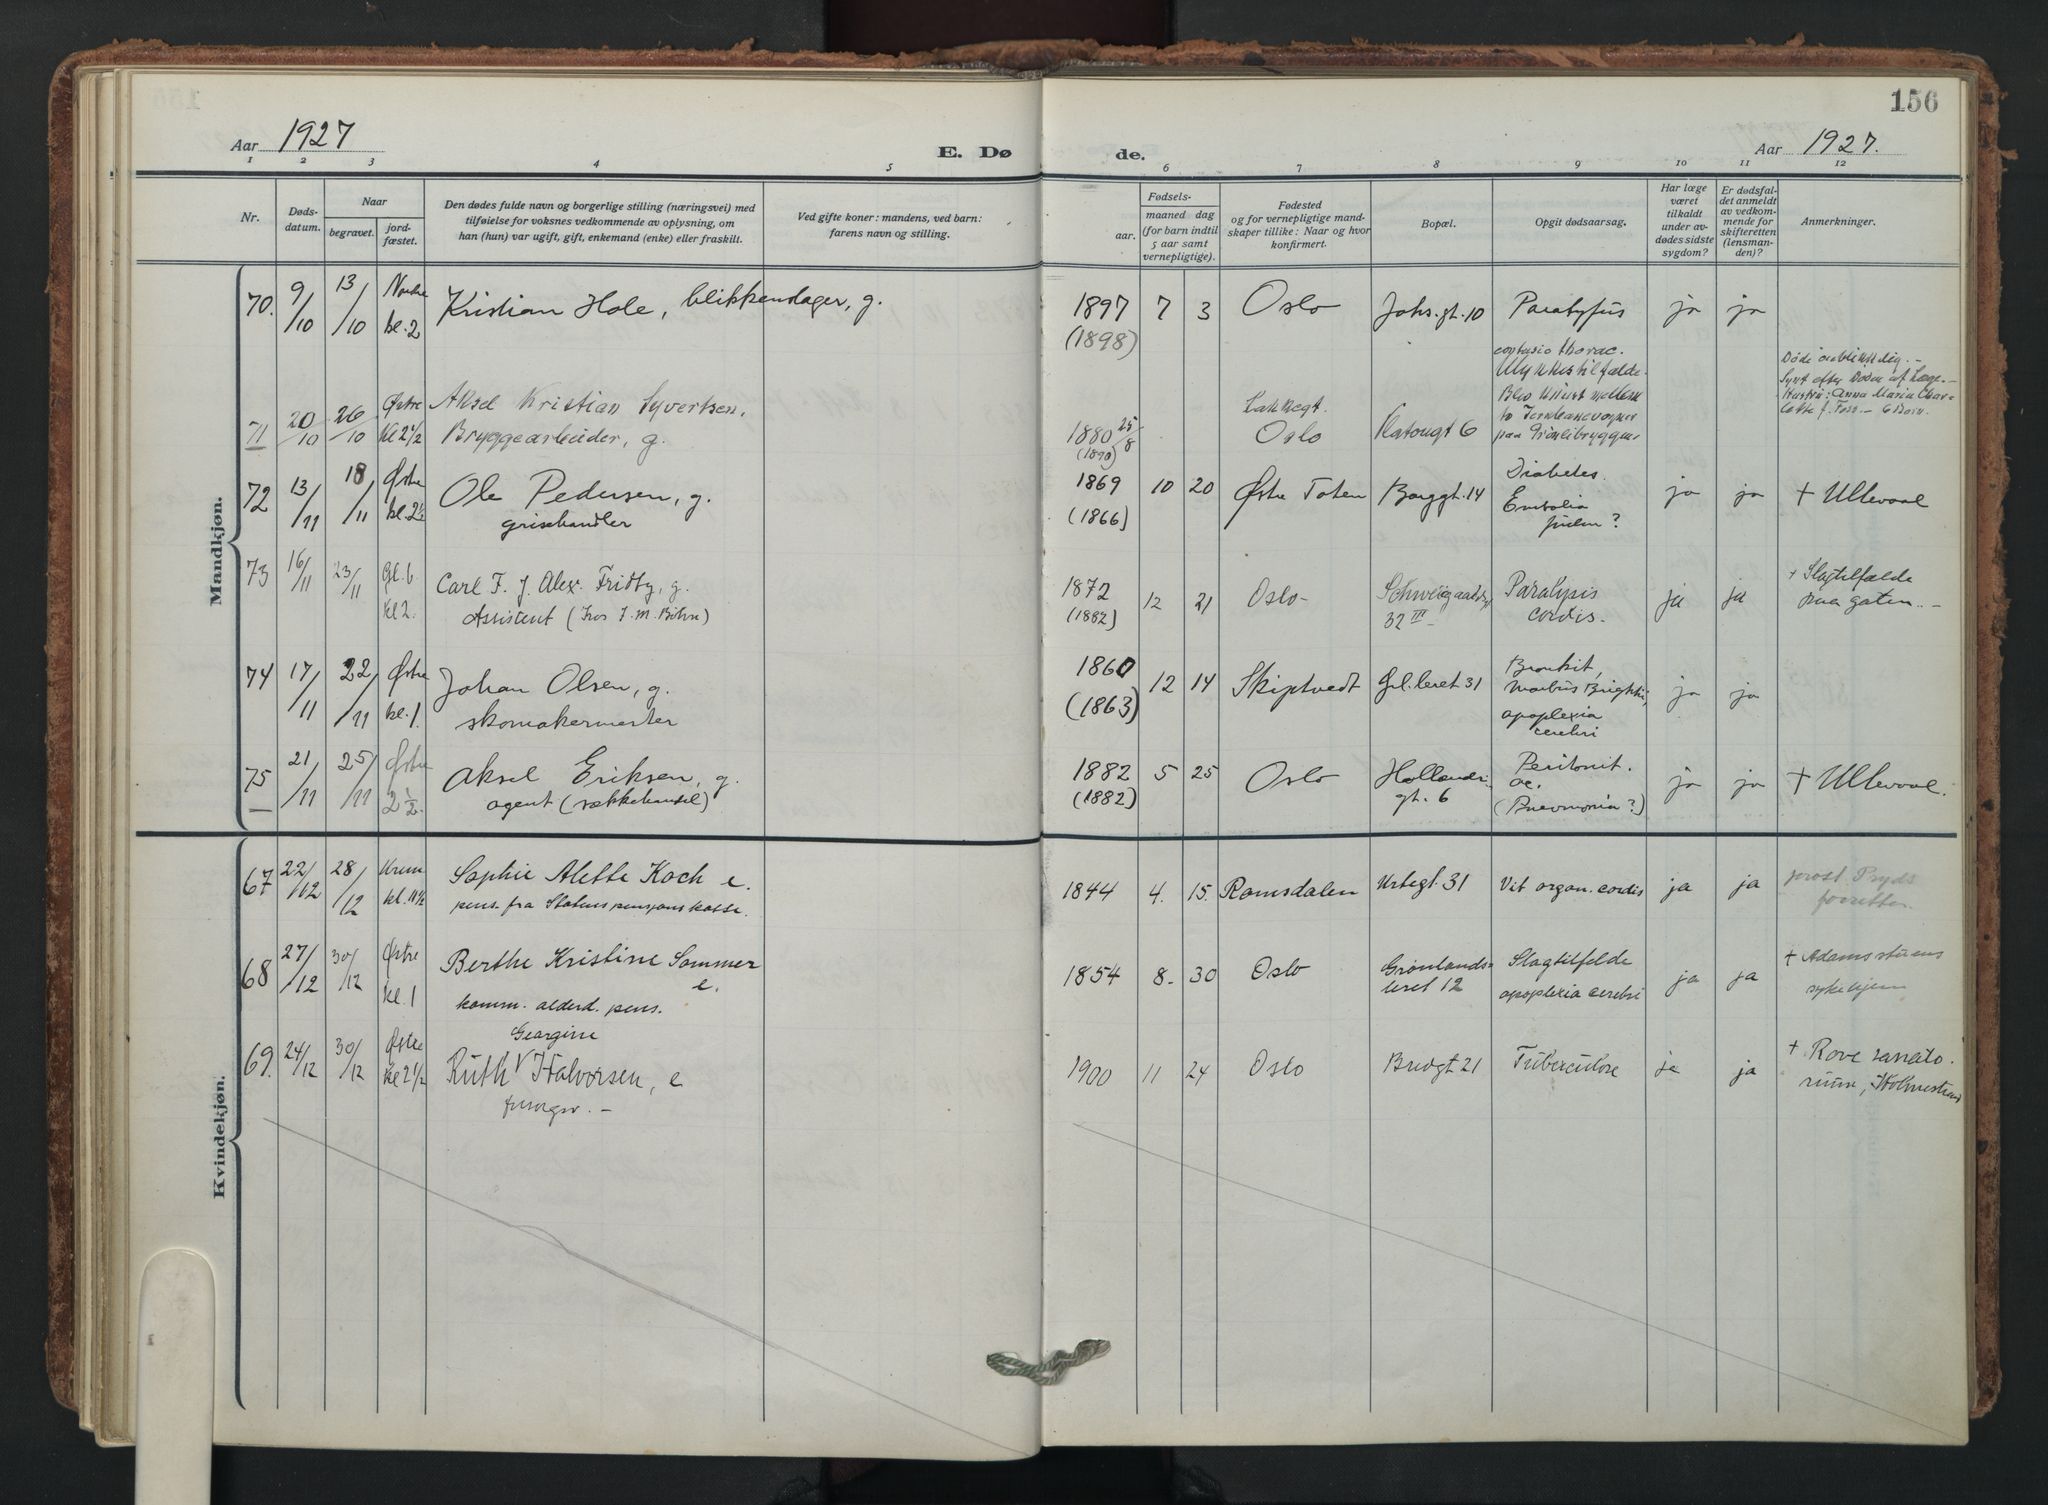 156
Aar 1927
E. Dø
de.
Aar 1927.
1 2 3 4 5 6 7 8 9 10 11 12
Nr.
Døds-
datum.
Naar
begravet.
jord-
fæstet.
Den dødes fulde navn og borgerlige stilling (næringsvei) med
tilføielse for voksnes vedkommende av oplysning, om
han (hun) var ugift, gift, enkemand (enke) eller fraskilt.
Ved gifte koner: mandens, ved barn:
farens navn og stilling.
Fødsels-
aar.
maaned dag
(for barn indtil
5 aar samt
vernepligtige).
Fødested
og for vernepligtige mand-
skaper tillike: Naar og hvor
konfirmert.
Bopæl.
Opgit dødsaarsag.
Har læge
været
tilkaldt
under av-
dødes sidste
sygdom?
Er dødsfal-
det anmeldt
av vedkom-
mende for
skifteretten
(lensman-
den)?
Anmerkninger.
Mandkjøn.
70. 9/10 13/10 Nordre kl. 2
Kristian Hole, blikkenslager, g.
1897 7 3 Oslo Johs. gt. 10 Paratyfus ja ja
(1898)
71 20/10 26/10 Østre Kl 2 1/2
Aksel Kristian Syvertsen,
Bryggearbeider, g.
1880 25/8
(1890)
Lakkegt.
Oslo
Platougt 6
contusio thorac.
Ulykkestilfælde.
Blev klemt mellem
to Jernbanevogner
paa Grønlibryggen
Døde øieblikkelig. -
Synt efter Døden af Læge. -
Hustru: Anna Maria Char-
lotte f. Foss. - 6 Børn.
72 13/11 18/11 Østre kl. 2 1/2
Ole Pedersen, g.
grisehandler
1869 10 20 Østre Toten Borggt. 14
(1866)
Diabetes.
Embolia
pulm?
ja ja + Ullevaal
73 16/11 23/11 Gl. b. kl 2.
Carl F. J. Alex. Fridby, g.
Assistent (hos J. M. Bøhn)
1872 12 21 Oslo-
(1882)
Schweigaardsgt
32 III -
Paralysis
cordis.
ja ja
+ Slagtilfælde
paa gaten. -
74 17/11 22/11 Østre kl. 1.
Johan Olsen, g.
skomakermester
1860 12 14 Skiptvedt Grl. leret 31
(1863)
Bronkit,
morbus Brightii,
apoplexia
cerebri
ja ja
75 21/11 25/11 Østre 2 1/2.
Aksel Eriksen, g.
agent (sækkehandel)
1882 5 25 Oslo
(1882)
Hollendr.
gt. 6
Peritonit.
ac.
(Pneumonia?)
ja ja + Ullevaal.
Kvindekjøn.
67 22/12 28/12 Krem kl. 11 1/2
Sophie Alette Koch e.
pens. fra Statens pensjonskasse.
1844 4. 15. Romsdalen Urtegt. 31 Vit. organ. cordis ja ja
prost Pryds
forretter.
68 27/12 30/12 Østre kl. 1
Berthe Kristine Sommer
e.
komm. alderd. pens.
1854 8. 30 Oslo
Grønlands-
leret 12
Slagtilfelde
apoplexia cerebri
ja ja
+ Adamstuens
sykehjem
69. 24/12 30/12 Østre Kl 2 1/2
Georgine
Ruth V Halvorsen, e
forsørges. -
1900 11 24 Oslo Bredgt 21 Tuberculose ja ja
+ Rove sanato-
rium, Holmestrand